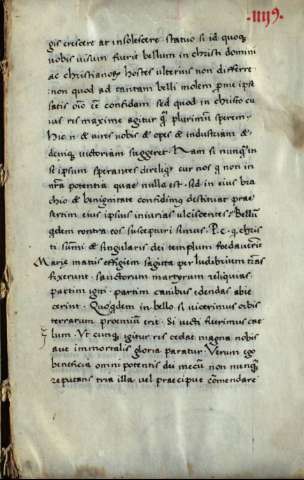 1119
gis crescere at insolescere. statuo si id quoq;
vobis uisum fuerit bellum in christi domini
ac christianoꝝ hostes ulterius non differre.
non quod ad tantam belli molem p me ipse
satis confidam. sed quod in christo cu
ius res maxime agitur plurimum sperem.
Hic n. & uires nobis & opes & industriam &
deniq; uictoriam suggeret. Nam si nunq̃ in
se ipsum sperantes cur nos non in
nr̃a potentia quae nulla est. sed in eius bra
chio & benignitate confidimus destituat prae
sertim eius ipsius iniurias ulciscentes. Bellũ
contra eos suscepturi sumus. P. c. q christi
ti. sum̃i & singularis dei templum foedauerũt
Marie matris effigiem sagitta per ludibrium
fixerunt. sanctorum martyrum reliquias
partim igni. partim canibus edendas abie
cerint. in bello si uicerimus orbis
terrarum proemium erit. Si uicti fuerimus cae
lum. Ut cunq; igitur res cedat magna nobis
aut immortalis gloria paratur. Verum ego
beneficia omni potentis dei mecũ non nunq̃
reputans tria illa uel praecipue cõmendare